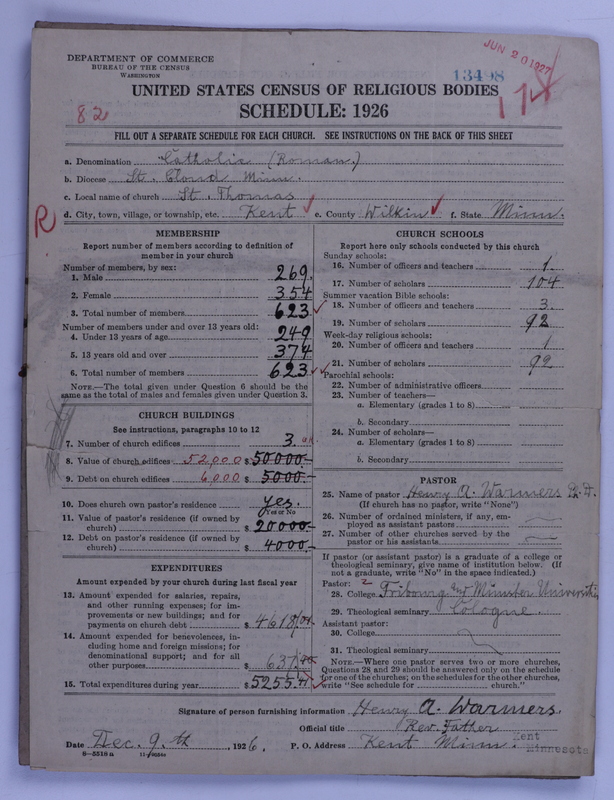 JUN 20 1927
DEPARTMENT OF COMMERCE
BUREAU OF THE CENSUS
WASHINGTON
13498
174
UNITED STATES CENSUS OF RELIGIOUS BODIES
82
SCHEDULE: 1926
FILL OUT A SEPARATE SCHEDULE FOR EACH CHURCH. SEE INSTRUCTIONS ON THE BACK OF THIS SHEET
a. Denomination Catholic (Roman.)
b. Diocese St. Cloud Minn.
c. Local name of church St. Thomas
R
d. City, town, village, or township, etc. Kent e. County Wilkin f. State Minn.
MEMBERSHIP
Report number of members according to definition of
member in your church
Number of members, by sex:
1. Male 269.
2. Female 354
3. Total number of members 623
Number of members under and over 13 years old:
4. Under 13 years of age 249
5. 13 years old and over 374
6. Total number of members 623
NOTE.—The total given under Question 6 should be
same as the total of males and females given under Question 3.
CHURCH BUILDINGS
See instructions, paragraphs 10 to 12
7. Number of church edifices 3. ok
8. Value of church edifices 52,000 $ 50000.-
9. Debt on church edifices 6000 $ 5000.-
10. Does church own pastor's residence? yes.
Yes or No
11. Value of pastor's residence (if owned by
church) $ 20000.-
12. Debt on pastor's residence (if owned by
church) $ 4000.-
EXPENDITURES
Amount expended by your church during last fiscal year
13. Amount expended for salaries, repairs,
and other running expenses; for im-
provements or new buildings; and for
payments on church debt $ 4618.
14. Amount expended for benevolences, in-
cluding home and foreign missions; for
denominational support; and for all
other purposes $ 637.
15. Total expenditures during year $ 5255.
CHURCH SCHOOLS
Report here only schools conducted by this church
Sunday schools:
16. Number of officers and teachers 1.
17. Number of scholars 104
Summer vacation Bible schools:
18. Number of officers and teachers 3.
19. Number of scholars 92
Week-day religious schools:
20. Number of officers and teachers 1
21. Number of scholars 92
Parochial schools:
22. Number of administrative officers
23. Number of teachers—
a. Elementary (grades 1 to 8)
b. Secondary
24. Number of scholars—
a. Elementary (grades 1 to 8)
b. Secondary
PASTOR
25. Name of pastor Henry A. Warmers
(If church has no pastor, write "None")
26. Number of ordained ministers, if any, em-
ployed as assistant pastors
27. Number of other churches served by the
pastor or his assistants
If pastor (or assistant pastor) is a graduate of a college or
theological seminary, give name of institution below. (If
not a graduate, write "No" in the space indicated.)
Pastor: 2
28. College Fribourg and Münster Universities
29. Theological seminary Cologne.
Assistant pastor:
30. College
31. Theological seminary
NOTE.—Where one pastor serves two or more churches,
Questions 28 and 29 should be answered only on the schedule
for one of the churches; on the schedules for the other churches,
write "See schedule for church."
Signature of person furnishing information Henry A. Warmers.
Official title Rev. Father
Date Dec. 9.th, 1926. P. O. Address Kent Minn. Kent
Minnesota